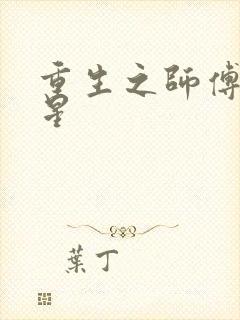 重生之師傅
星
葉丁